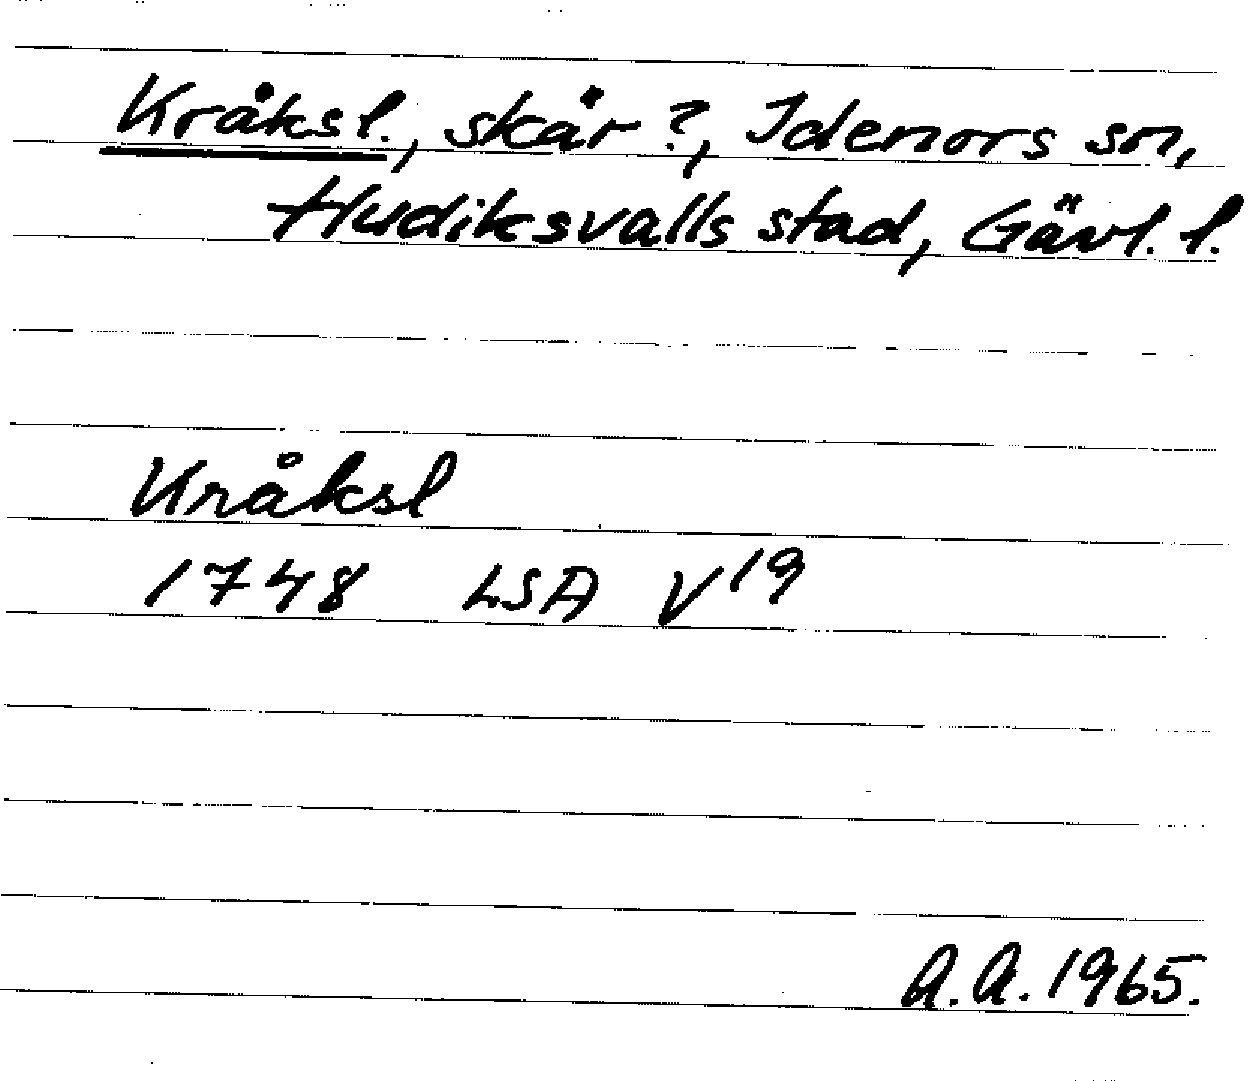 Kråksl., skär?, Idenors sn,
Hudiksvalls stad, Gävl. l.
Kråksl
1748 LSA V19
A.A. 1965.